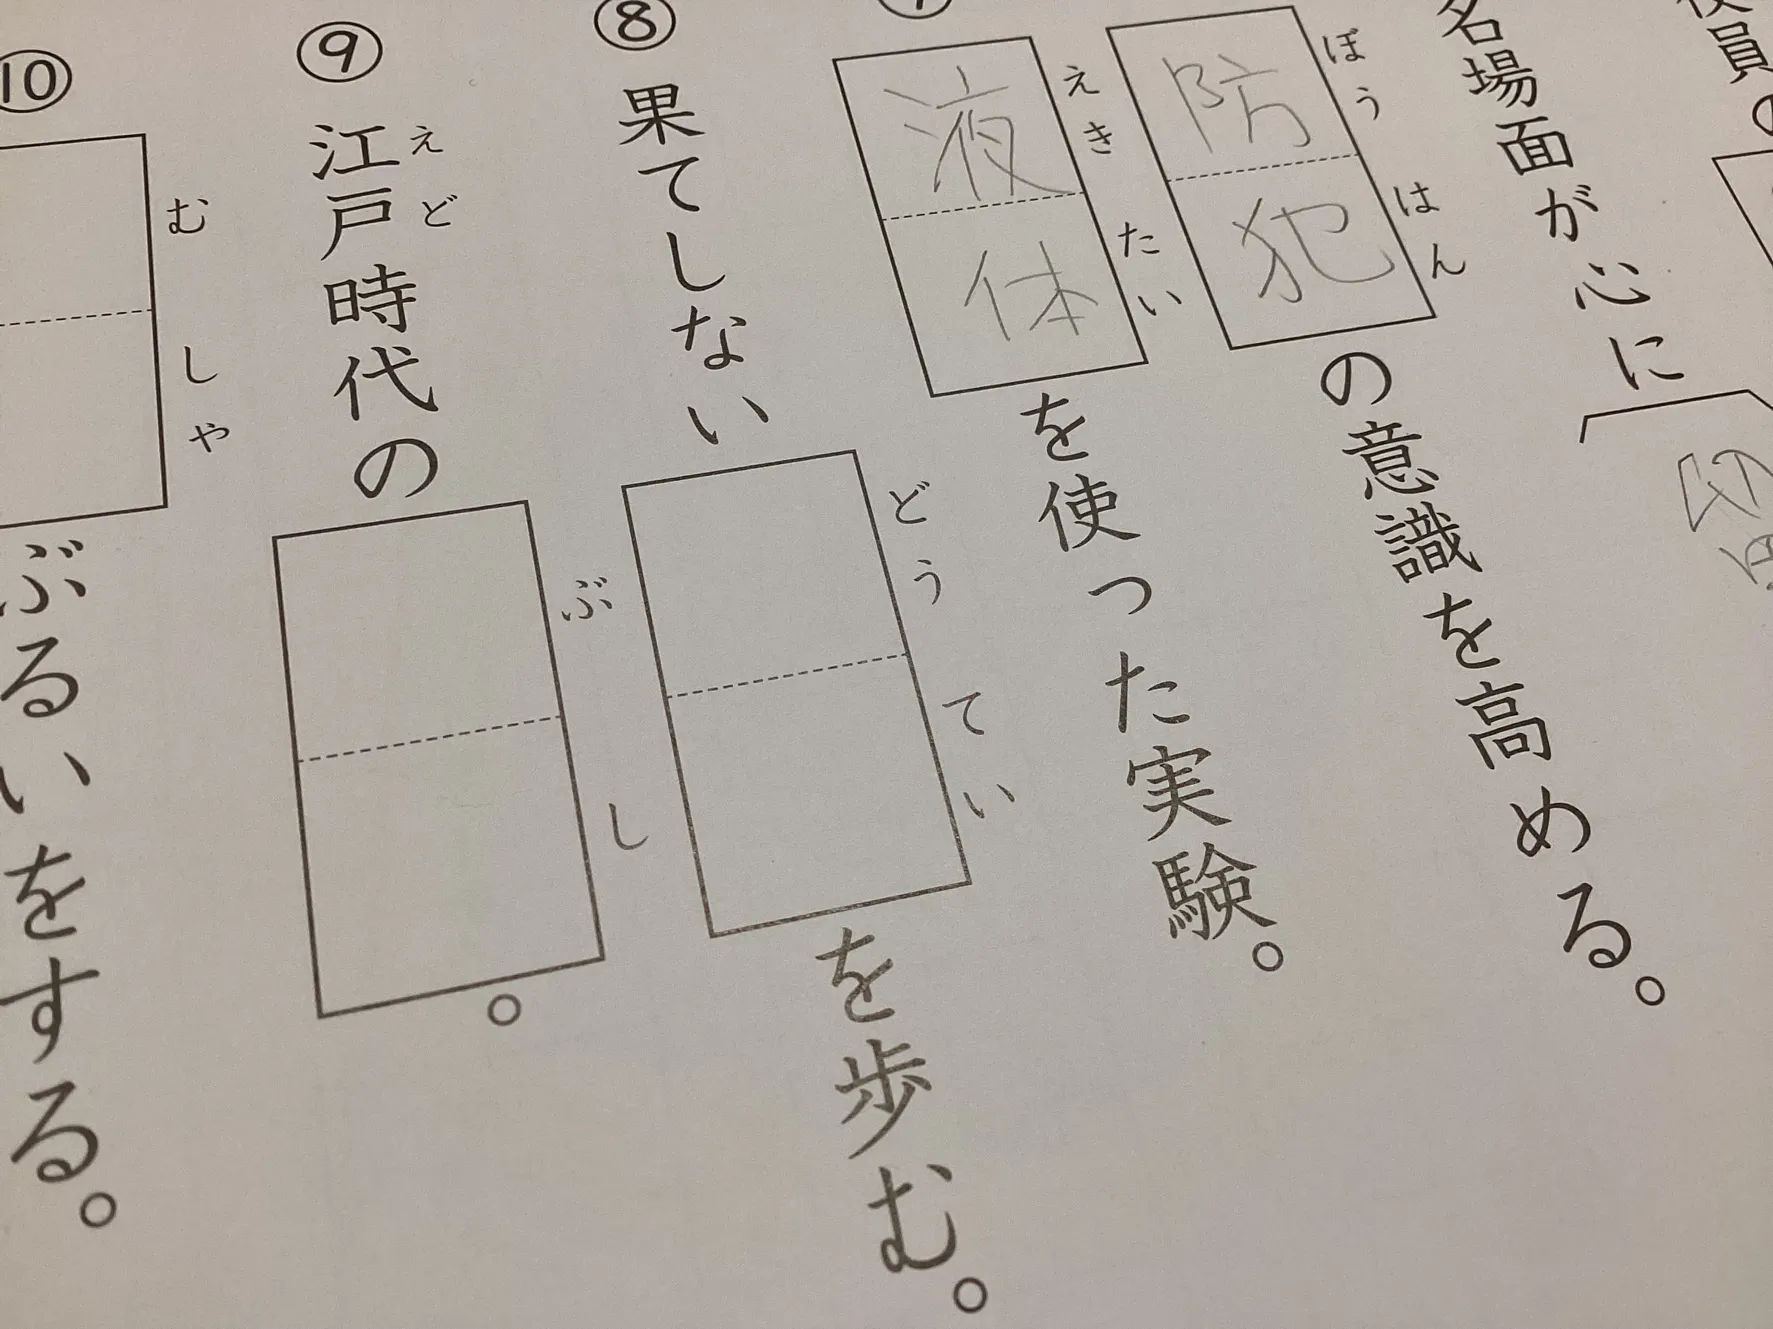 名場面が心に
ぼうはん
防犯の意識を高める。
えきたい
液体を使った実験。
⑧ 果てしない
どうてい
を歩む。
⑨ 江戸時代の
えど
ぶし
。
⑩
むしゃ
ぶるいをする。